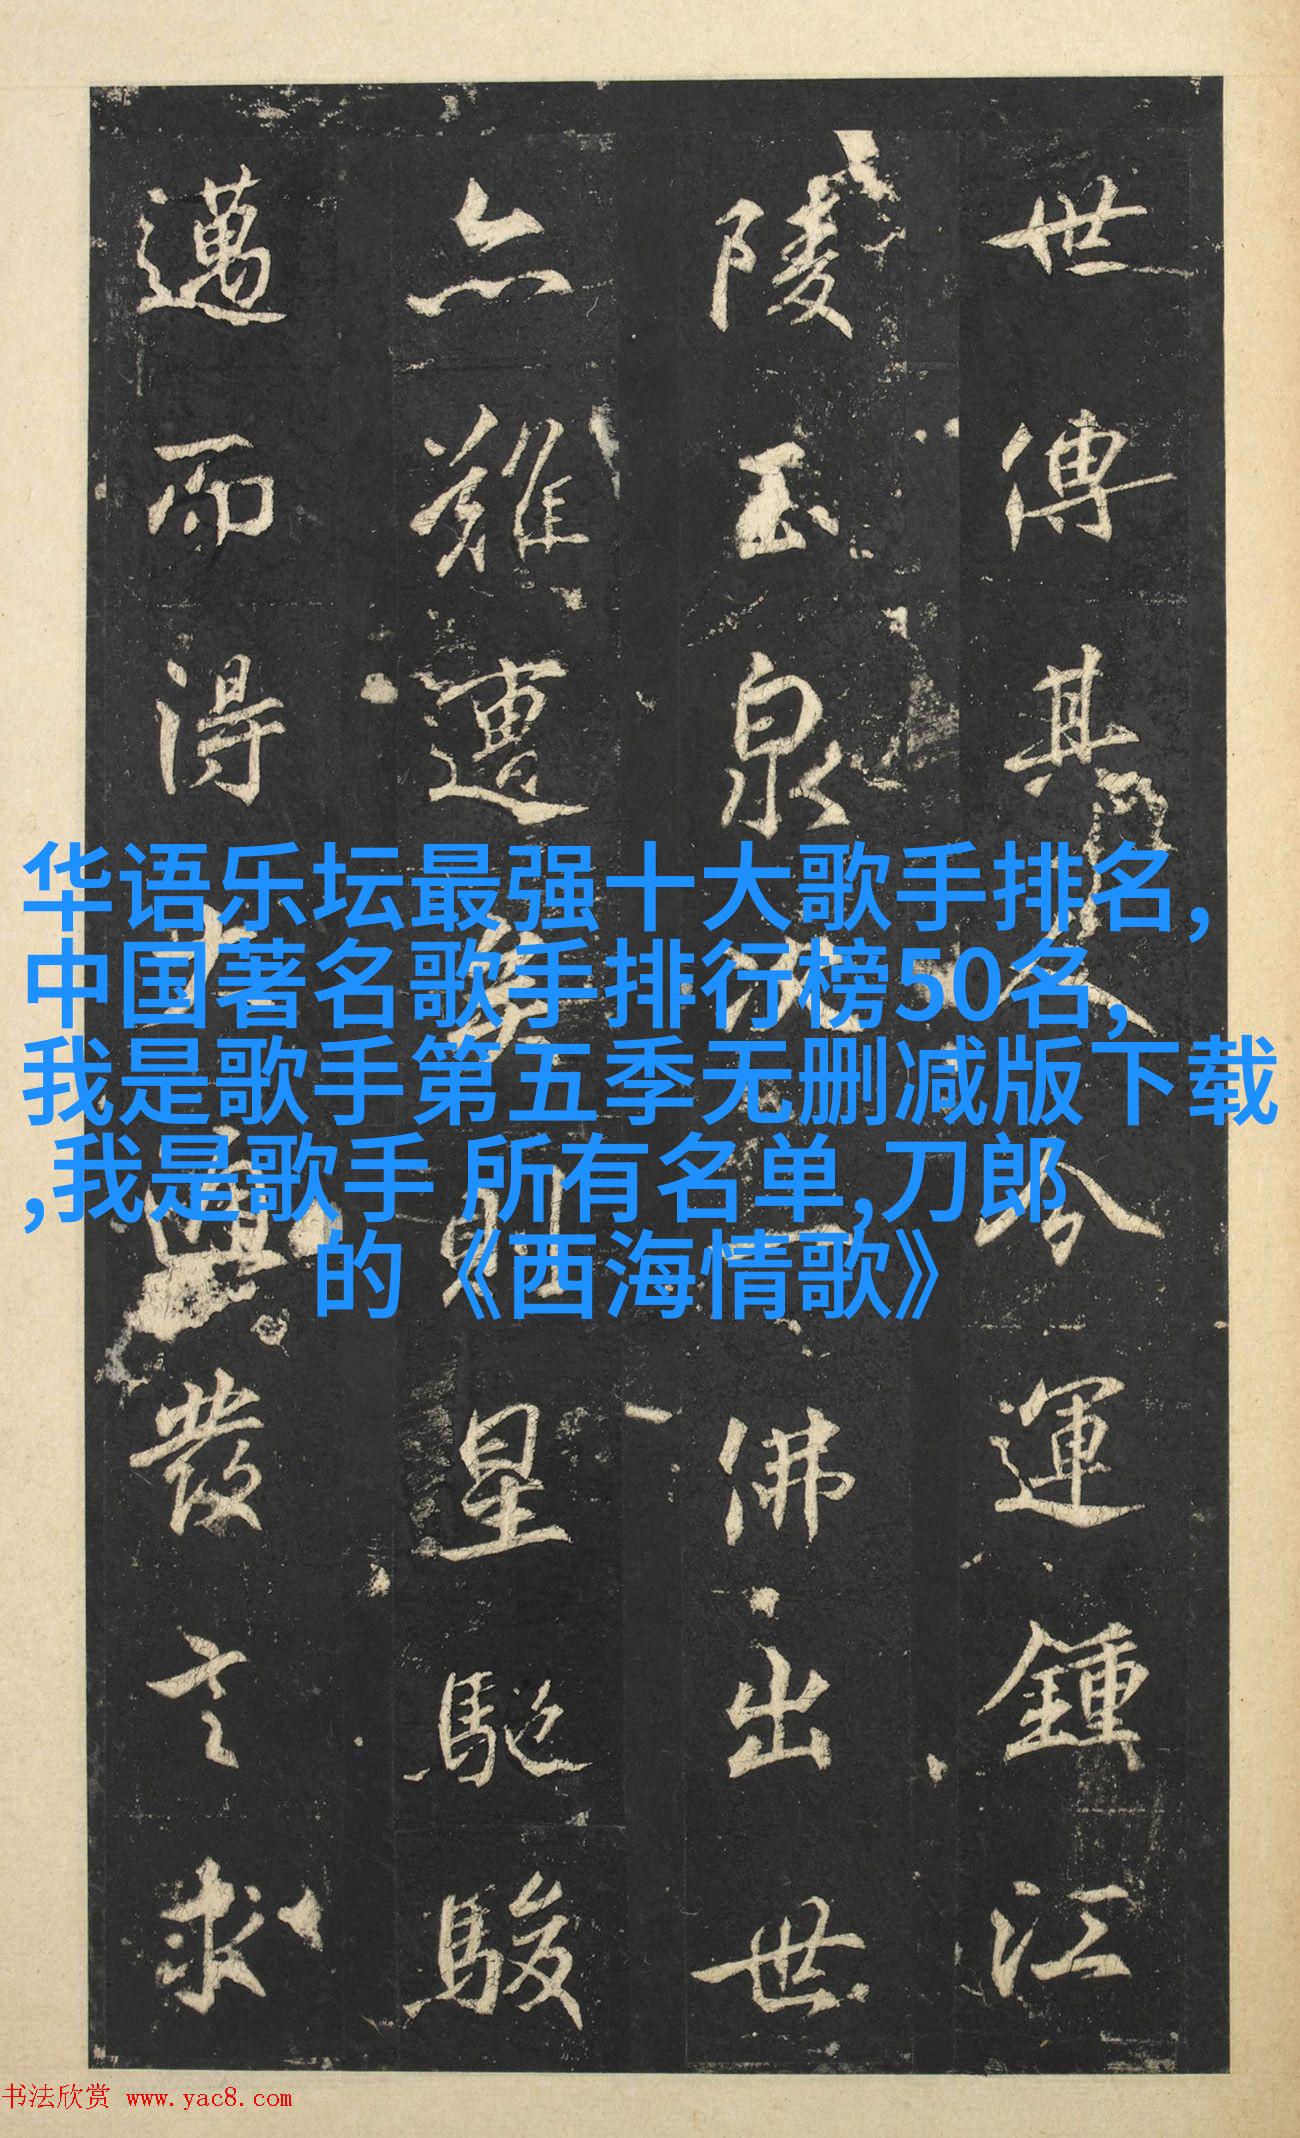 世傳其人今運鍾江
陵玉泉流一佛出世
亦難遭矣則星馳駿
邁而得
發言求
华语乐坛最强十大歌手排名,
中国著名歌手排行榜50名,
我是歌手第五季无删减版下载
,我是歌手 所有名单,刀郎
的《西海情歌》
书法欣赏 www.yac8.com